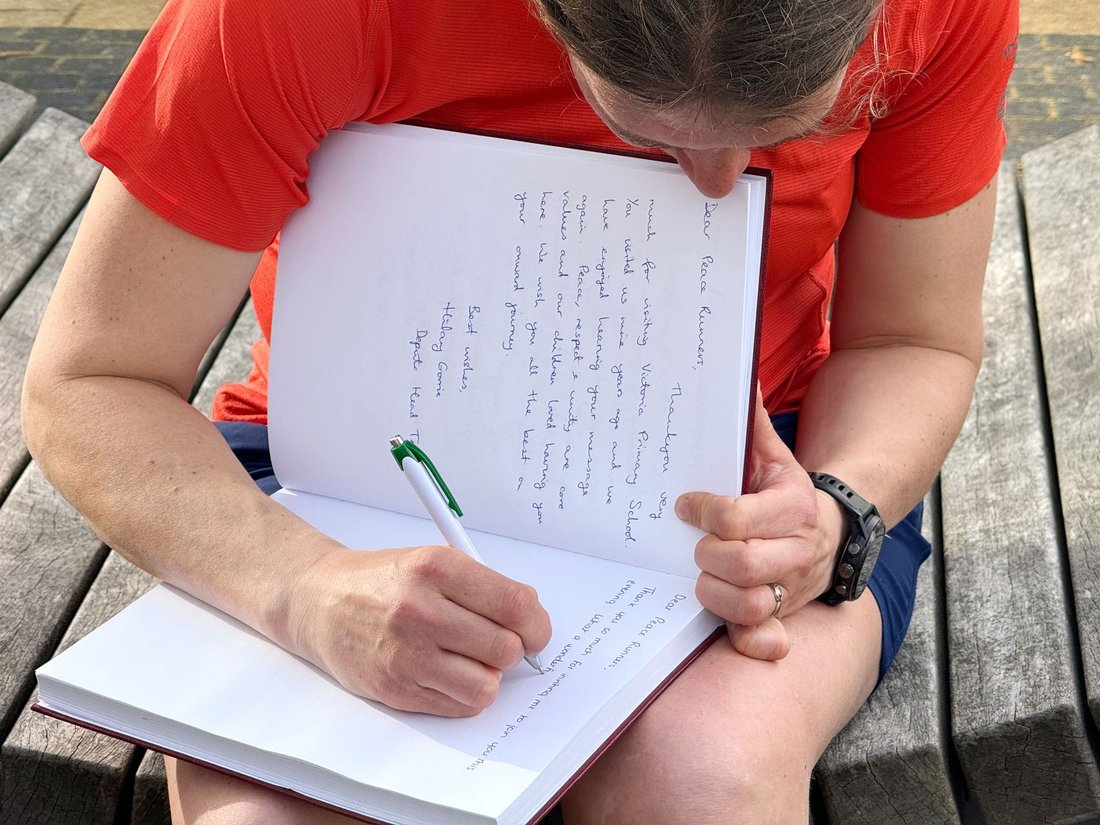 Dear Peace Runners,
Thankyou very
much for visiting Victoria Primary School.
You visited us nine years ago and we
have enjoyed hearing your message
again. Peace, respect & unity are core
values and our children loved having you
here. We wish you all the best on
your onward journey.
Best wishes,
Hilary Gorrie
Depute Head T
Dear Peace Runners,
Thank you so much for inviting me to join you this
evening. What a wonderf